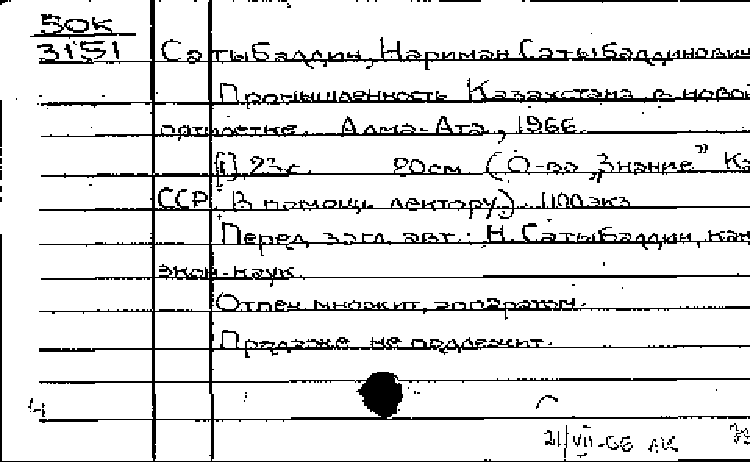 50к
3151
Сатыбалдин, Нариман Сатыбалдинович
Промышленность Казахстана в новой
пятилетке. Алма-Ата, 1966.
[1], 23с. 20см (О-во „Знание” Ка
ССР. В помощь лектору.). 1100экз
Перед загл. авт.: Н. Сатыбалдин, кан
экон-наук.
Отпеч. множит. аппаратом.
Продаже не подлежит.
4
21/VII-66